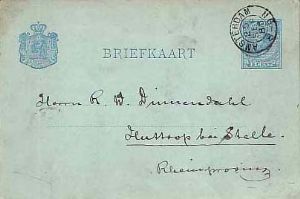 AMSTERDAM
BRIEFKAART
Herrn R. W. Dinnendahl
Huttrop bei Steele.
Rheinprovinz.